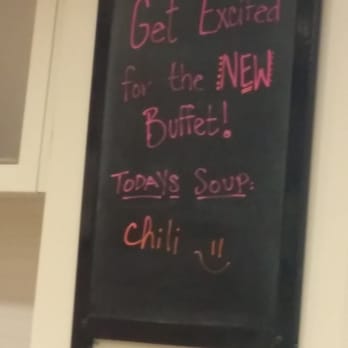 Get Excited
for the NEW
Buffet!
TODAYS SOUP:
chili